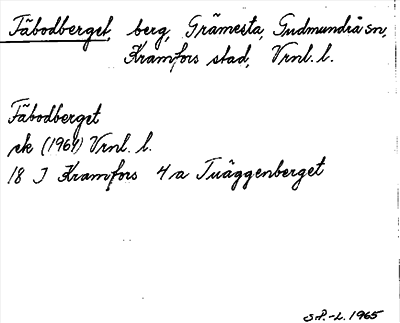 Fäbodberget, berg, Grämesta, Gudmundrå sn,
Kramfors stad, Vrnl. l.
Fäbodberget
ek (1964) Vrnl. l.
18 J Kramfors 4 a Tuäggenberget
S.P.-L. 1965